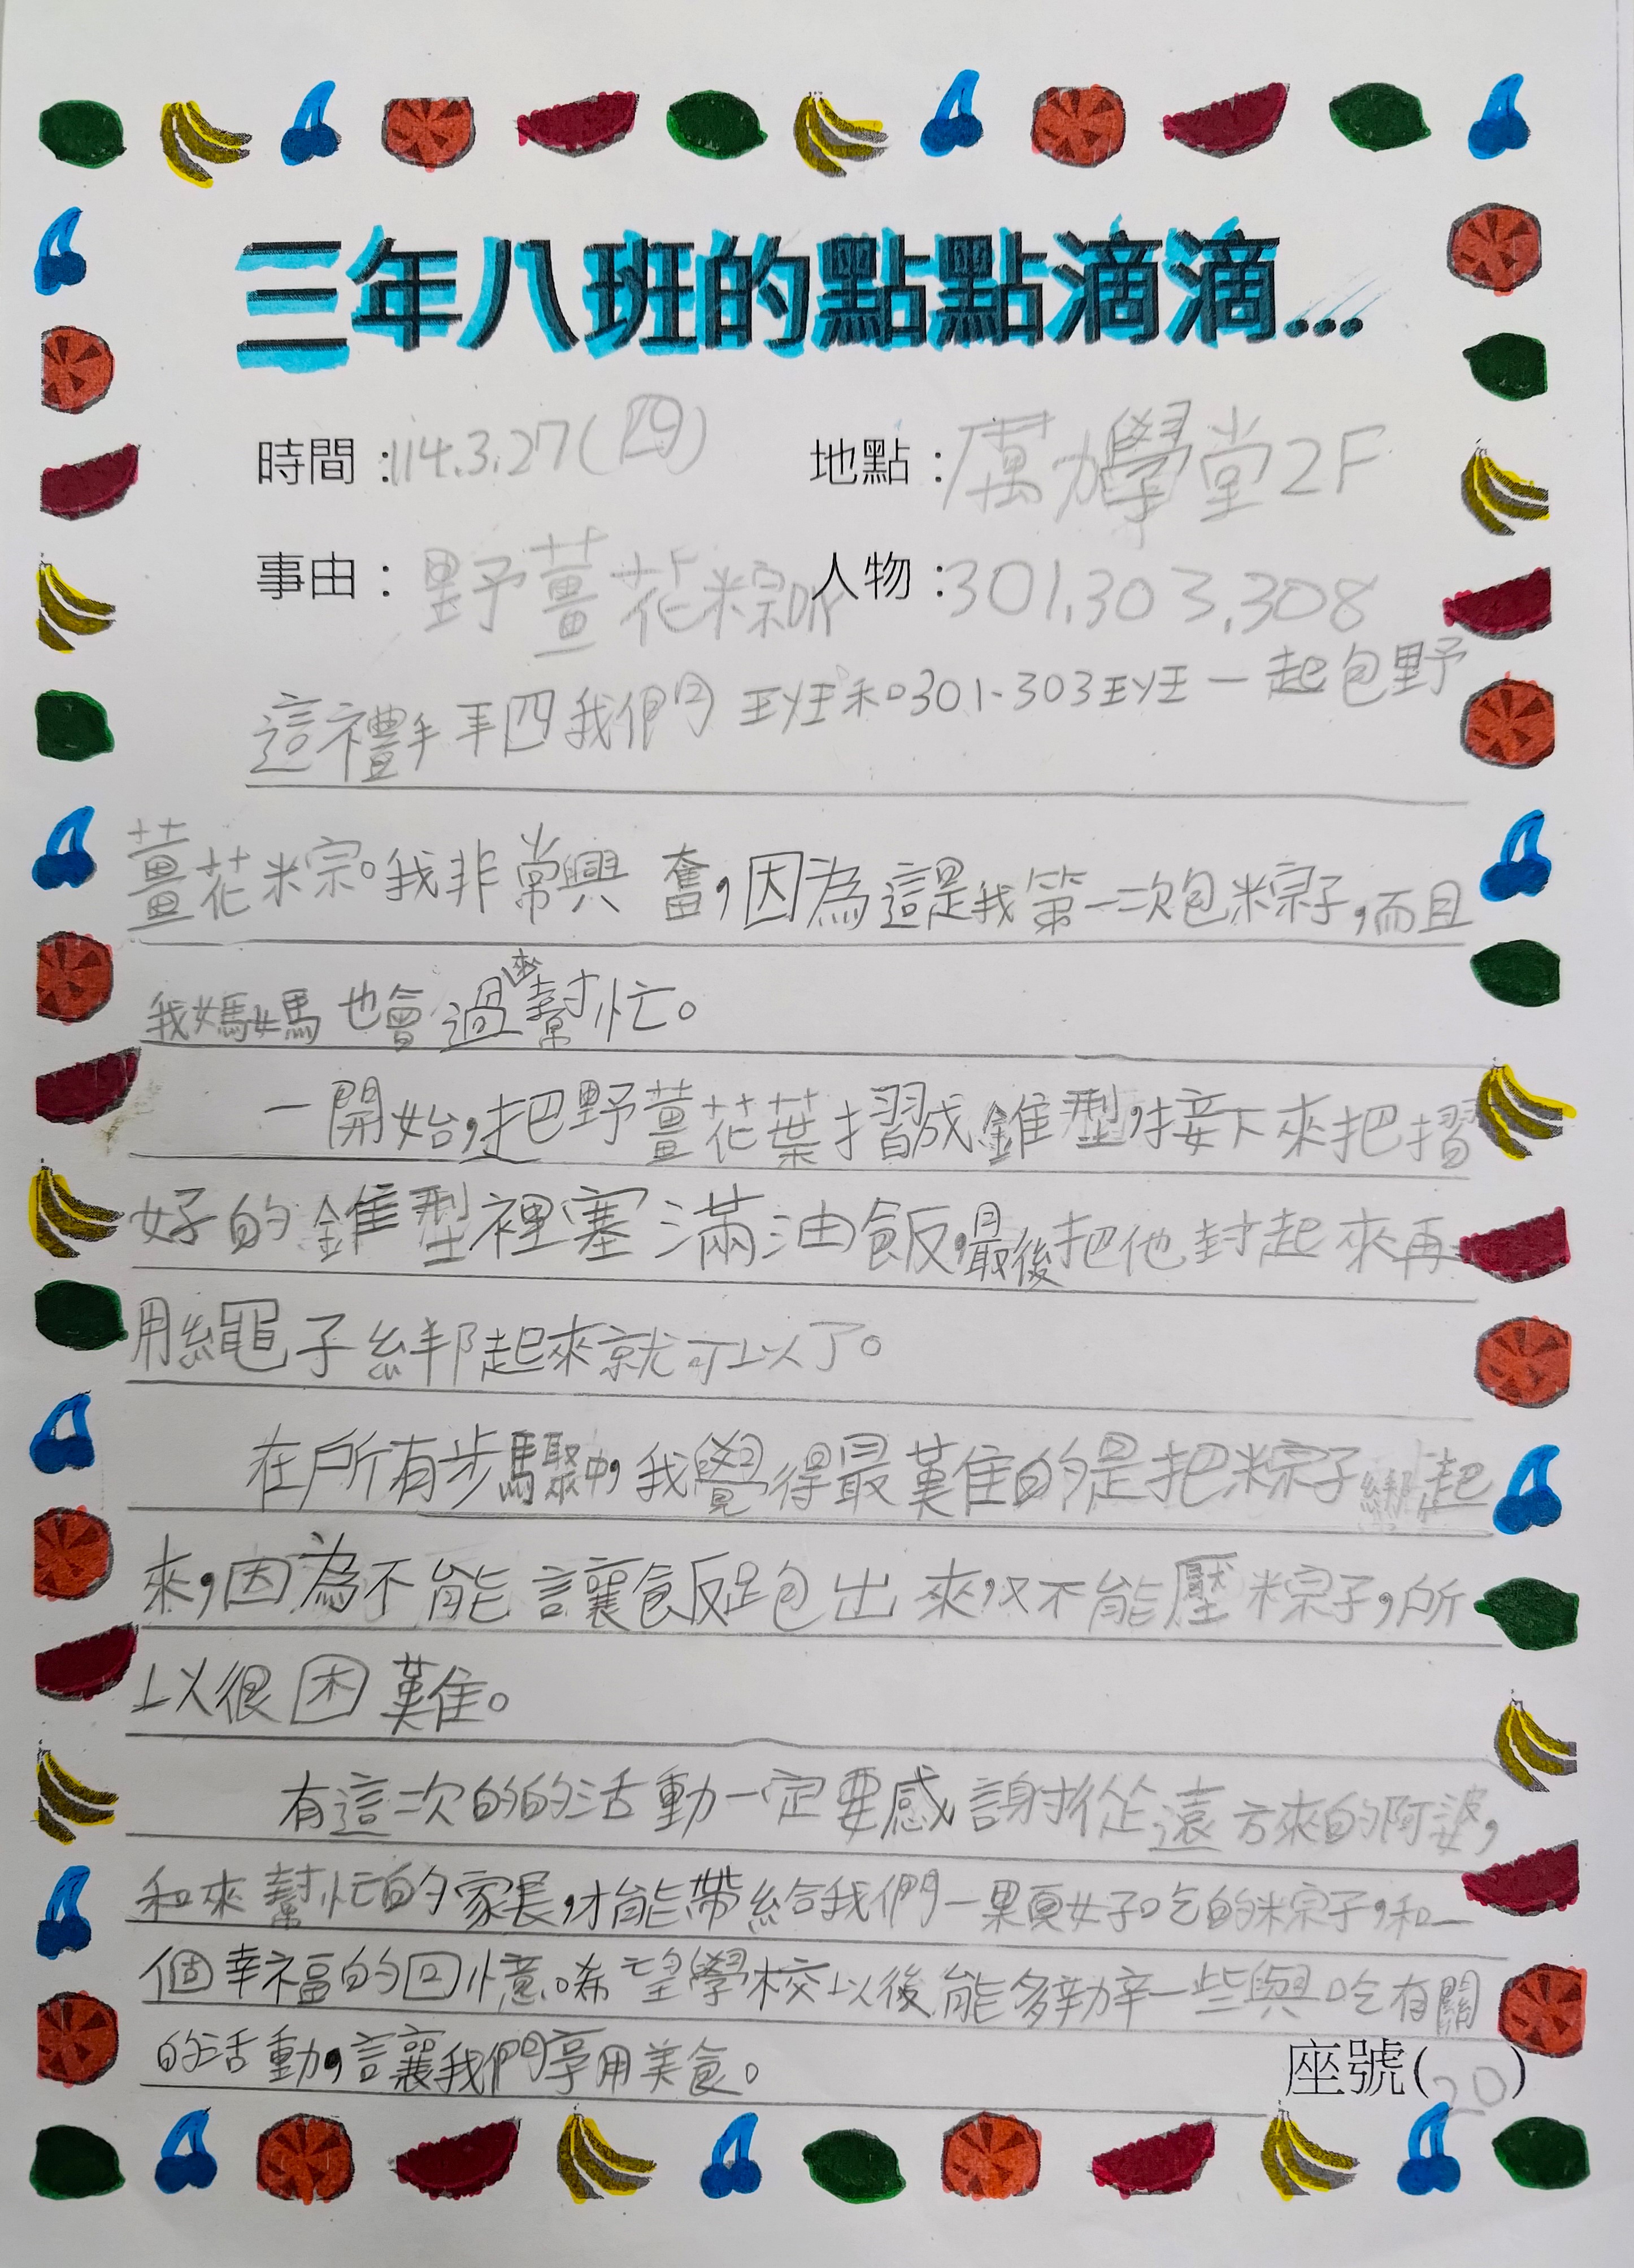 三年八班的點點滴滴...
時間：114.3.27(四) 地點：厲力學堂2F
事由：野薑花粽 人物：301.303.308
這禮拜四我們班和301、303班一起包野
薑花粽。我非常興奮，因為這是我第一次包粽子，而且
我媽媽也會過來幫忙。
一開始，把野薑花葉摺成錐型，接下來把摺
好的錐型裡塞滿油飯，最後把他封起來再
用繩子綁起來就可以了。
在所有步驟中，我覺得最難的是把粽子綁起
來，因為不能讓飯跑出來，又不能壓粽子，所
以很困難。
有這次的的活動一定要感謝從遠方來的阿婆，
和來幫忙的家長，才能帶給我們一顆好吃的粽子，和一
個幸福的回憶。唏望學校以後能多辦一些與吃有關
的活動，讓我們享用美食。
座號(20)